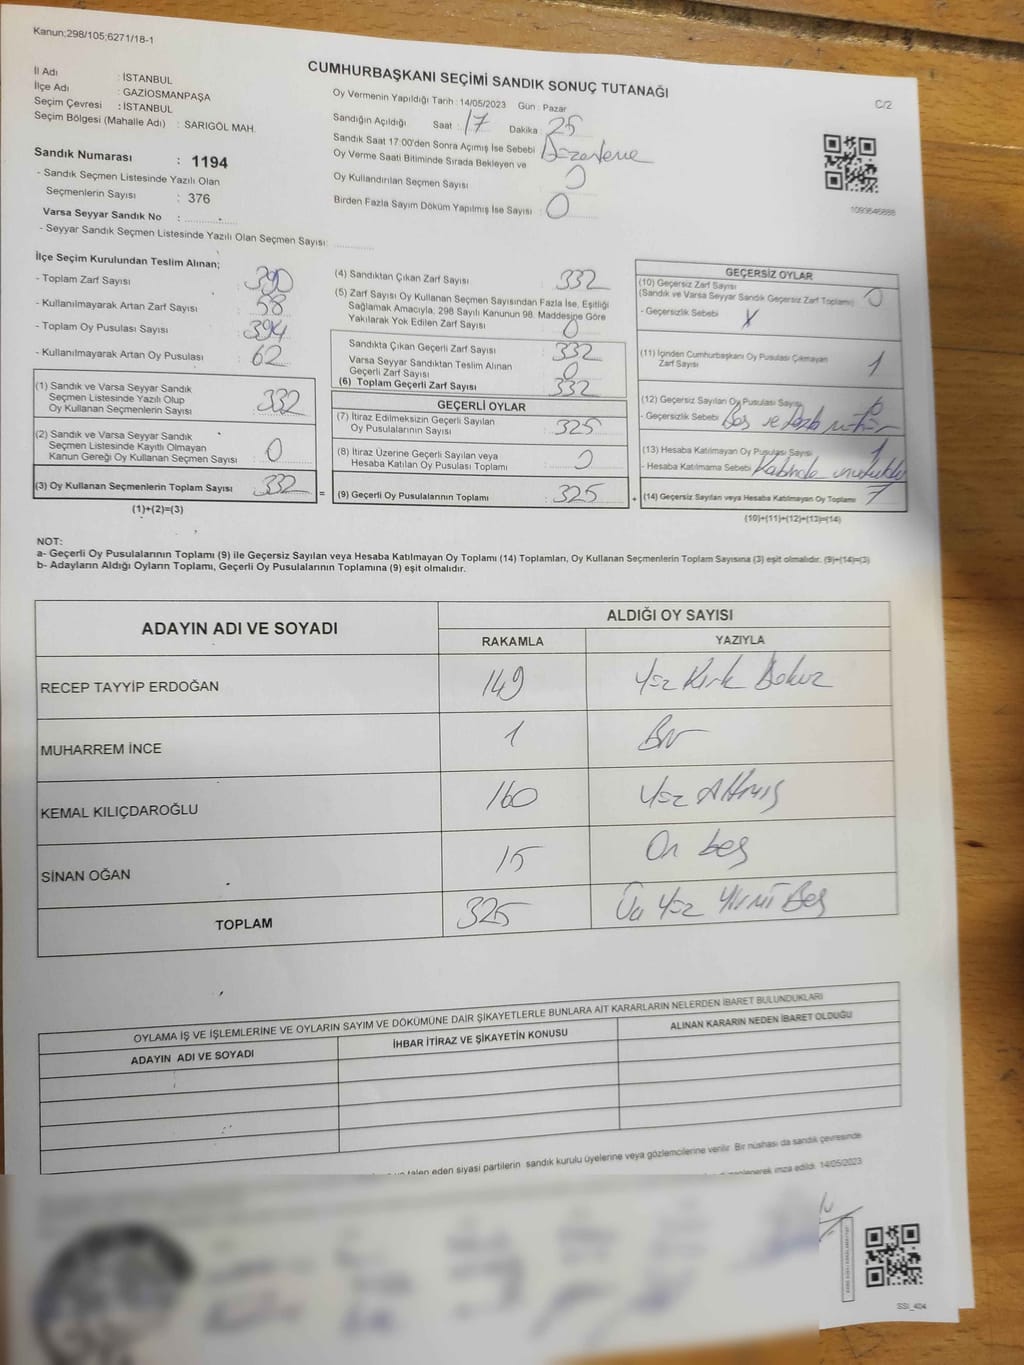 Kanun;298/105;6271/18-1
CUMHURBAŞKANI SEÇİMİ SANDIK SONUÇ TUTANAĞI
C/2
İl Adı : İSTANBUL
İlçe Adı : GAZİOSMANPAŞA
Seçim Çevresi : İSTANBUL
Seçim Bölgesi (Mahalle Adı) : SARIGÖL MAH.
Sandık Numarası : 1194
- Sandık Seçmen Listesinde Yazılı Olan
Seçmenlerin Sayısı : 376
Varsa Seyyar Sandık No :
- Seyyar Sandık Seçmen Listesinde Yazılı Olan Seçmen Sayısı:
Oy Vermenin Yapıldığı Tarih : 14/05/2023 Gün : Pazar
Sandığın Açıldığı Saat : 17 Dakika : 25
Sandık Saat 17:00'den Sonra Açımış İse Sebebi
Oy Verme Saati Bitiminde Sırada Bekleyen ve
Oy Kullandırılan Seçmen Sayısı : 0
Birden Fazla Sayım Döküm Yapılmış İse Sayısı : 0
1093646888
İlçe Seçim Kurulundan Teslim Alınan;
- Toplam Zarf Sayısı : 390
- Kullanılmayarak Artan Zarf Sayısı : 58
- Toplam Oy Pusulası Sayısı : 394
- Kullanılmayarak Artan Oy Pusulası : 62
(1) Sandık ve Varsa Seyyar Sandık
Seçmen Listesinde Yazılı Olup
Oy Kullanan Seçmenlerin Sayısı : 332
(2) Sandık ve Varsa Seyyar Sandık
Seçmen Listesinde Kayıtlı Olmayan
Kanun Gereği Oy Kullanan Seçmen Sayısı : 0
(3) Oy Kullanan Seçmenlerin Toplam Sayısı : 332
(1)+(2)=(3)
(4) Sandıktan Çıkan Zarf Sayısı : 332
(5) Zarf Sayısı Oy Kullanan Seçmen Sayısından Fazla İse, Eşitliği
Sağlamak Amacıyla, 298 Sayılı Kanunun 98. Maddesine Göre
Yakılarak Yok Edilen Zarf Sayısı : 0
Sandıkta Çıkan Geçerli Zarf Sayısı : 332
Varsa Seyyar Sandıktan Teslim Alınan
Geçerli Zarf Sayısı : 0
(6) Toplam Geçerli Zarf Sayısı : 332
GEÇERLİ OYLAR
(7) İtiraz Edilmeksizin Geçerli Sayılan
Oy Pusulalarının Sayısı : 325
(8) İtiraz Üzerine Geçerli Sayılan veya
Hesaba Katılan Oy Pusulası Toplamı : 0
= (9) Geçerli Oy Pusulalarının Toplamı : 325 +
GEÇERSİZ OYLAR
(10) Geçersiz Zarf Sayısı : 0
(Sandık ve Varsa Seyyar Sandık Geçersiz Zarf Toplamı)
- Geçersizlik Sebebi X
(11) İçinden Cumhurbaşkanı Oy Pusulası Çıkmayan
Zarf Sayısı 1
(12) Geçersiz Sayılan Oy Pusulası Sayısı
- Geçersizlik Sebebi Boş ve fazla mühür
(13) Hesaba Katılmayan Oy Pusulası Sayısı 1
- Hesaba Katılmama Sebebi Kabinde unutuldu
(14) Geçersiz Sayılan veya Hesaba Katılmayan Oy Toplamı 7
(10)+(11)+(12)+(13)=(14)
NOT:
a- Geçerli Oy Pusulalarının Toplamı (9) ile Geçersiz Sayılan veya Hesaba Katılmayan Oy Toplamı (14) Toplamları, Oy Kullanan Seçmenlerin Toplam Sayısına (3) eşit olmalıdır. (9)+(14)=(3)
b- Adayların Aldığı Oyların Toplamı, Geçerli Oy Pusulalarının Toplamına (9) eşit olmalıdır.
ADAYIN ADI VE SOYADI ALDIĞI OY SAYISI
RAKAMLA YAZIYLA
RECEP TAYYİP ERDOĞAN 149 Yüz Kırk Dokuz
MUHARREM İNCE 1 Bir
KEMAL KILIÇDAROĞLU 160 Yüz Altmış
SİNAN OĞAN 15 On beş
TOPLAM 325 Üç Yüz Yirmi Beş
OYLAMA İŞ VE İŞLEMLERİNE VE OYLARIN SAYIM VE DÖKÜMÜNE DAİR ŞİKAYETLERLE BUNLARA AİT KARARLARIN NELERDEN İBARET BULUNDUKLARI
ADAYIN ADI VE SOYADI İHBAR İTİRAZ VE ŞİKAYETİN KONUSU ALINAN KARARIN NEDEN İBARET OLDUĞU
talep eden siyasi partilerin sandık kurulu üyelerine veya gözlemcilerine verilir. Bir nüshası da sandık çevresinde
imza edildi. 14/05/2023
SSI_404